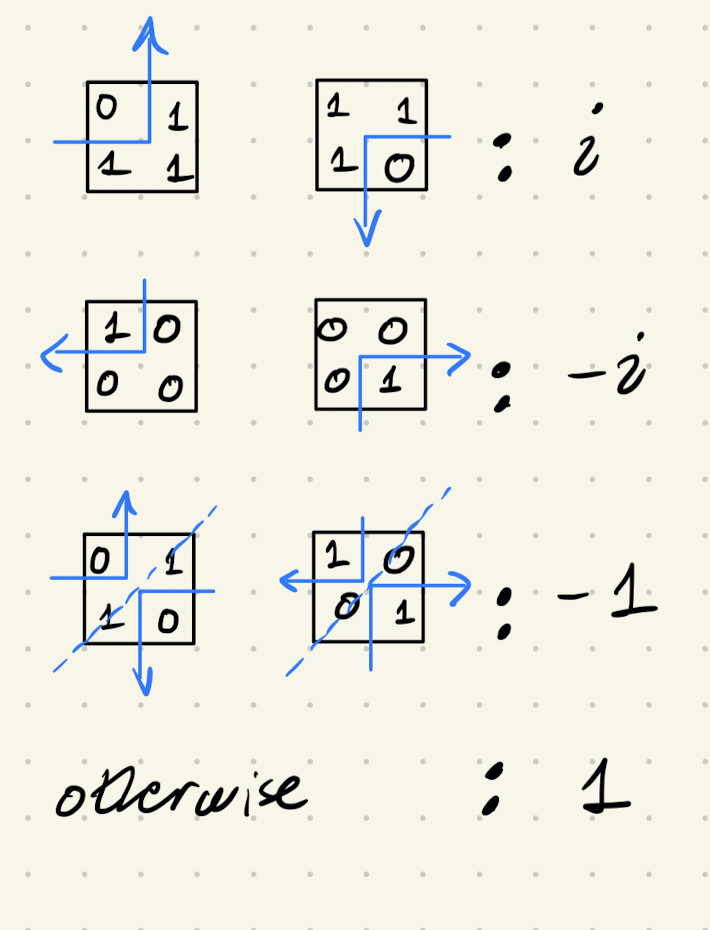 0 1 1 1 : i
1 1 1 0
1 0 0 0 : -i
0 0 0 1
0 1 1 0 : -1
1 0 0 1
otherwise : 1